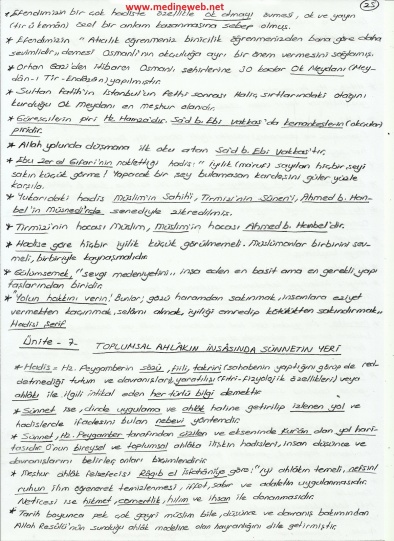 www.medineweb.net
25
* Efendimizin bir çok hadiste özellikle ok atmayı övmesi, ok ve yayın
(Tîr ü kemân) özel bir anlam kazanmasına sebep olmuş.
* Efendimizin "Atıcılık öğrenmeniz binicilik öğrenmenizden bana göre daha
sevimlidir, demesi Osmanlı'nın okçuluğa ayrı bir önem vermesini sağlamış.
* Orhan Gazi'den itibaren Osmanlı şehirlerine 30 kadar Ok Meydanı (Mey-
dân-ı Tîr-Endâzân) yapılmıştır.
* Sultan Fatih'in İstanbul'un Fethi sonrası Haliç sırtlarındaki otağını
kurduğu Ok Meydanı en meşhur olanıdır.
* Güreşçilerin piri Hz. Hamza'dır. Sa'd b. Ebi Vakkas'da kemankeşlerin (okçuları)
piridir.
* Allah yolunda düşmana ilk oku atan Sa'd b. Ebi Vakkas'tır.
* Ebu Zer al Gıfari'nin naklettiği hadis: "iyilik (maruf) sayılan hiçbir şeyi
sakın küçük görme! Yapacak bir şey bulamasan kardeşini güler yüzle
karşıla.
* Yukarıdaki hadis Müslim'in Sahih'i, Tirmizi'nin Sünen'i, Ahmed b. Han-
bel'in Müsned'inde senediyle zikredilmiş.
* Tirmizi'nin hocası Müslim, Müslim'in hocası Ahmed b. Hanbel'dir.
* Hadise göre hiçbir iyilik küçük görülmemeli. Müslümanlar birbirini sev-
meli, birbiriyle kaynaşmalıdır.
* Gülümsemek, "sevgi medeniyetini" inşa eden en basit ama en gerekli yapı
taşlarından biridir.
* "Yolun hakkını verin! Bunlar; gözü haramdan sakınmak, insanlara eziyet
vermekten kaçınmak, selâmı almak, iyiliği emredip kötülükten sakındırmak"
Hadisi Şerif
Ünite - 7. TOPLUMSAL AHLÂKIN İNŞÂSINDA SÜNNETİN YERİ
* Hadis = Hz. Peygamberin sözü, fiili, takriri (sahabenin yaptığını görüp de red-
detmediği tutum ve davranışlar), yaratılışı (Fıtri-Fizyolojik özellikleri) veya
ahlâkı ile ilgili intikal eden her türlü bilgi demektir.
* Sünnet ise, dinde uygulama ve ahlâk haline getirilip izlenen yol ve
hadislerde ifadesini bulan nebevî yöntemdir.
* Sünnet, Hz. Peygamber tarafından çizilen ve ekseninde Kur'ân olan yol harî-
tasıdır. O'nun bireysel ve toplumsal ahlâka ilişkin hadisleri, insan düşünce ve
davranışlarını belirleyip onları biçimlendirir.
* Meşhur ahlâk felsefecisi Râgıb el İsfahânîye göre; "iyi ahlâkın temeli, nefsini
ruhun ilim öğrenerek temizlenmesi, iffet, sabır ve adaletin uygulanmasıdır.
Neticesi ise hikmet, cömertlik, hilim ve ihsan ile donanmasıdır.
* Tarih boyunca pek çok gayri müslim bile, düşünce ve davranış bakımından
Allah Resûlü'nün sunduğu ahlâk modeline olan hayranlığını dile getirmiştir.